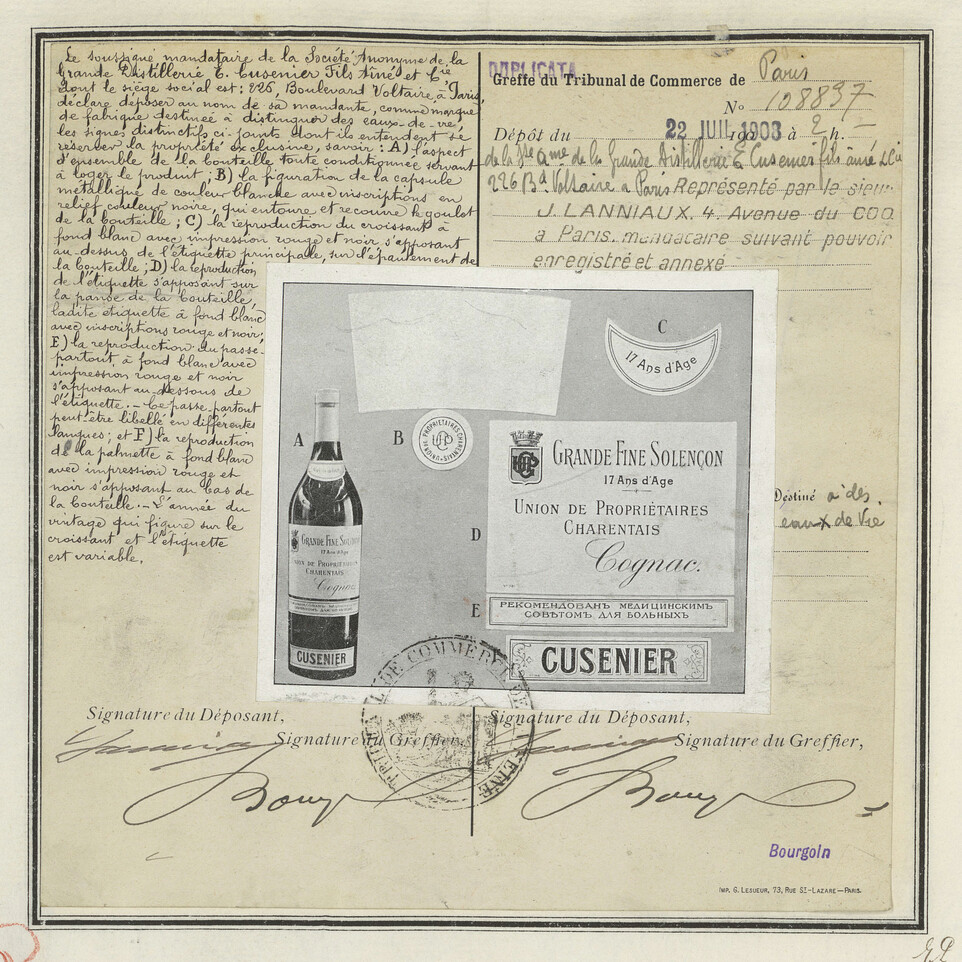 Le soussigné mandataire de la Société Anonyme de la
Grande Distillerie E. Cusenier Fils Aîné et Cie
dont le siège social est : 226, Boulevard Voltaire, à Paris,
déclare déposer au nom de sa mandante, comme marque
de fabrique destinée à distinguer des eaux-de-vie,
les signes distinctifs ci-joints dont ils entendent se
réserver la propriété exclusive, savoir : A) l'aspect
d'ensemble de la bouteille toute conditionnée servant
à loger le produit ; B) la figuration de la capsule
métallique de couleur blanche avec inscriptions en
relief couleur noire, qui entoure et recouvre le goulot
de la bouteille ; C) la reproduction du croissant à
fond blanc avec impression rouge et noir s'apposant
au-dessus de l'étiquette principale, sur l'épaulement de
la bouteille ; D) la reproduction
de l'étiquette s'apposant sur
la panse de la bouteille,
ladite étiquette à fond blanc
avec inscriptions rouge et noir ;
E) la reproduction du passe-
partout à fond blanc avec
impression rouge et noir
s'apposant au-dessous de
l'étiquette. - Ce passe-partout
peut-être libellé en différentes
langues ; et F) la reproduction
de la palmette à fond blanc
avec impression rouge et
noir s'apposant au bas de
la bouteille. - L'année du
vintage qui figure sur le
croissant et l'étiquette
est variable.
DUPLICATA
Greffe du Tribunal de Commerce de Paris
No 108837
Dépôt du 22 JUIL 1903 à 2 h. -
de la Sté ame de la Grande Distillerie E. Cusenier fils aîné & Cie
226 Bd Voltaire a Paris Représenté par le sieur
J. LANNIAUX. 4. Avenue du COQ
à Paris. mandataire suivant pouvoir
enregistré et annexé
Destiné à des
eaux de Vie
A
B
C
D
E
17 Ans d'Age
UNION DE PROPRIÉTAIRES CHARENTAIS
GRANDE FINE SOLENÇON
17 Ans d'Age
UNION DE PROPRIÉTAIRES
CHARENTAIS
Cognac.
РЕКОМЕНДОВАНЪ МЕДИЦИНСКИМЪ
СОВѢТОМЪ ДЛЯ БОЛЬНЫХЪ
CUSENIER
GRANDE FINE SOLENÇON
17 Ans d'Age
UNION DE PROPRIÉTAIRES
CHARENTAIS
Cognac
CUSENIER
TRIBUNAL DE COMMERCE DE LA SEINE
Signature du Déposant,
Signature du Greffier,
Signature du Déposant,
Signature du Greffier,
Bourgoin
IMP. G. LESUEUR, 73, RUE ST-LAZARE — PARIS.